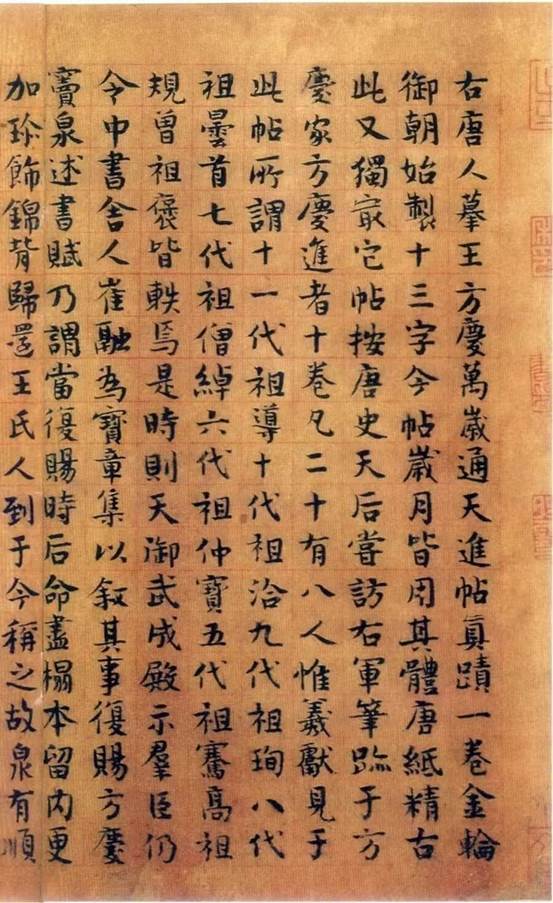 右唐人摹王方慶萬歲通天進帖真蹟一卷金輪
御朝始製十三字今帖歲月皆用其體唐紙精古
此又獨最它帖按唐史天后嘗訪右軍筆蹟于方
慶家方慶進者十卷凡二十有八人惟羲獻見于
此帖所謂十一代祖導十代祖洽九代祖珣八代
祖曇首七代祖僧綽六代祖仲寶五代祖騫高祖
規曾祖褒皆軼焉是時則天御武成殿示羣臣仍
令中書舍人崔融為寶章集以敘其事復賜方慶
竇泉述書賦乃謂當復賜時后命盡榻本留內更
加珍飾錦背歸還王氏人到于今稱之故泉有順